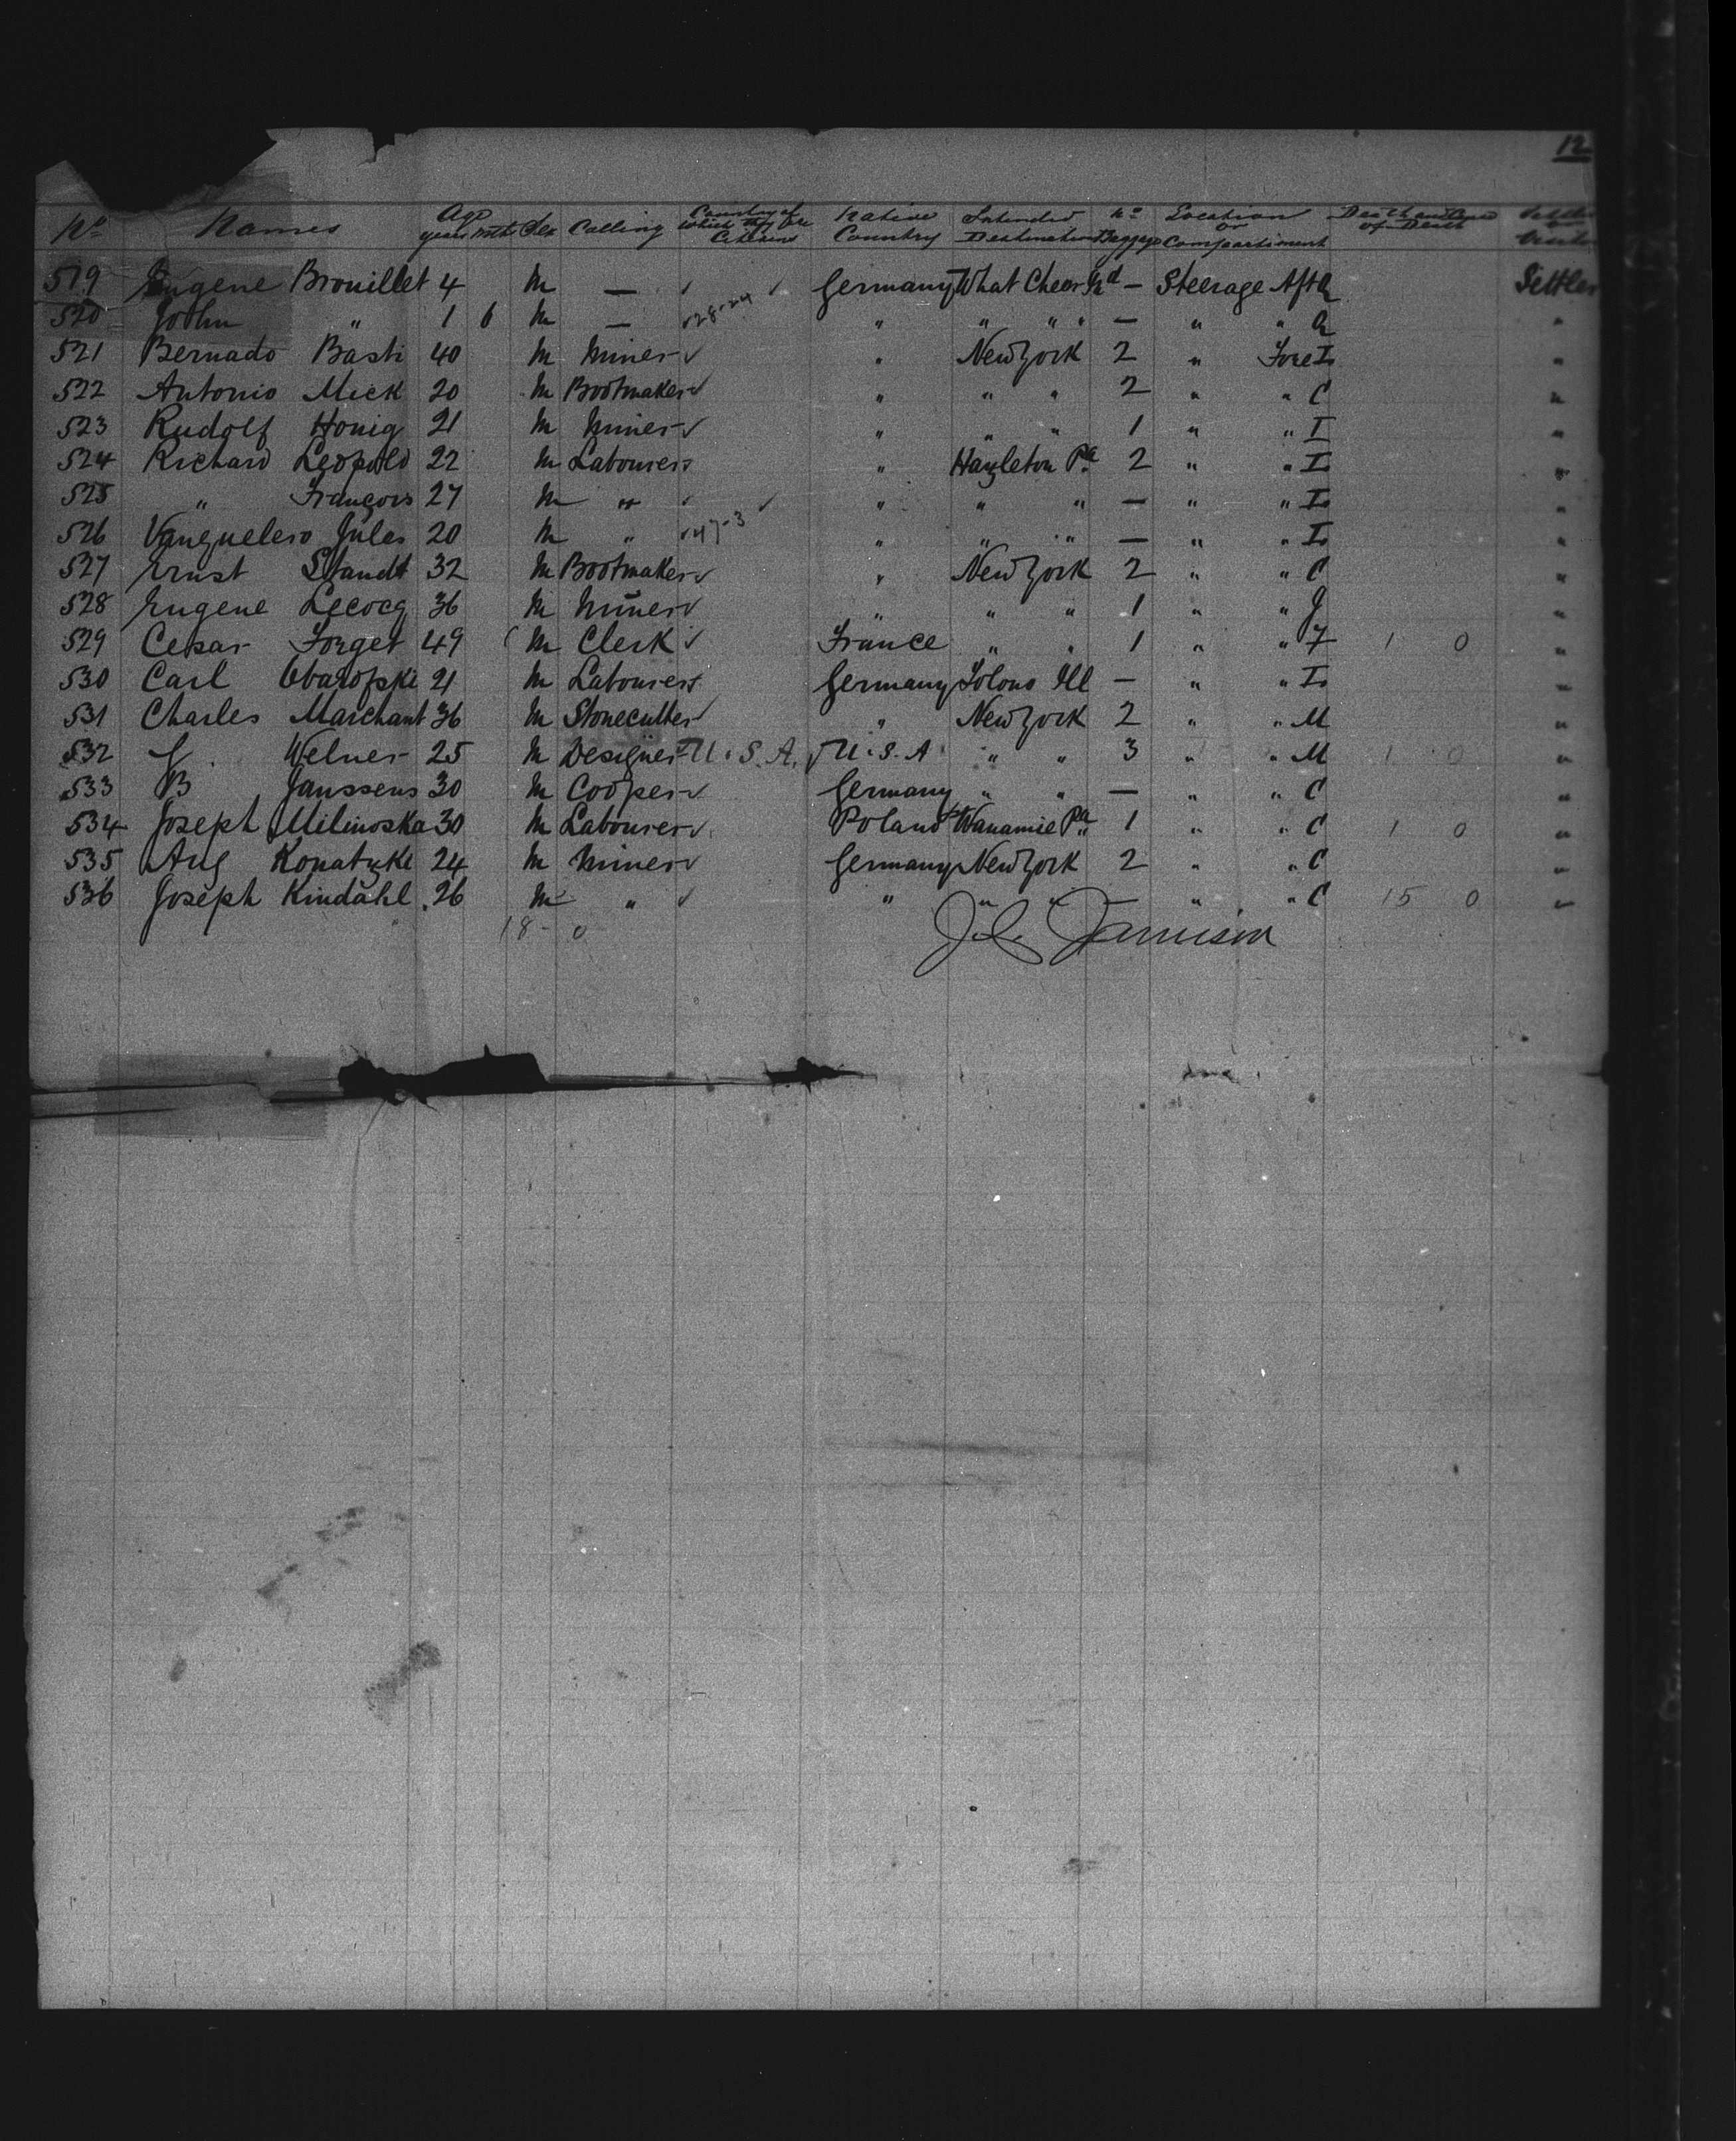 12
No Names Age years mths Sex Calling Country of which they are Citizens Native Country Intended Destination No Baggage Location or Compartment of Death
519 Eugene Brouillet 4 M — ✓ ✓ Germany What Cheer — Steerage Aft Settler
520 John " 1 6 M — ✓ 28-24 " " " " — " " "
521 Bernado Basti 40 M Miner ✓ " New York 2 " Fore I "
522 Antonio Mick 20 M Bootmaker ✓ " " " 2 " " C "
523 Rudolf Honig 21 M Miner ✓ " " " 1 " " I "
524 Richard Leopold 22 M Labourer " Hazleton Pa 2 " " I "
525 " François 27 M " ✓ ✓ " " " — " " I "
526 Vanguelero Jules 20 M " ✓ 47-3 " " " — " " I "
527 Ernst Standt 32 M Bootmaker ✓ " New York 2 " " C "
528 Eugene Lecocq 36 M Miner ✓ " " " 1 " " J "
529 Cesar Forget 49 M Clerk ✓ France " " 1 " " 7 1 0 "
530 Carl 21 M Labourer Germany Tolono Ill — " " I "
531 Charles Marchant 36 M Stonecutter ✓ " New York 2 " " M "
532 J. Welner 25 M Designer U.S.A. ✓ U.S.A " " 3 " " M 1 0 "
533 B Janssens 30 M Cooper ✓ Germany " " — " " C "
534 Joseph Milinoska 30 M Labourer ✓ Poland Wanamie Pa 1 " " C 1 0 "
535 Aug Konatzke 24 M Miner ✓ Germany New York 2 " " C "
536 Joseph Kindahl 26 M " ✓ " " " " " C 15 0 "
18 - 0 Jamison